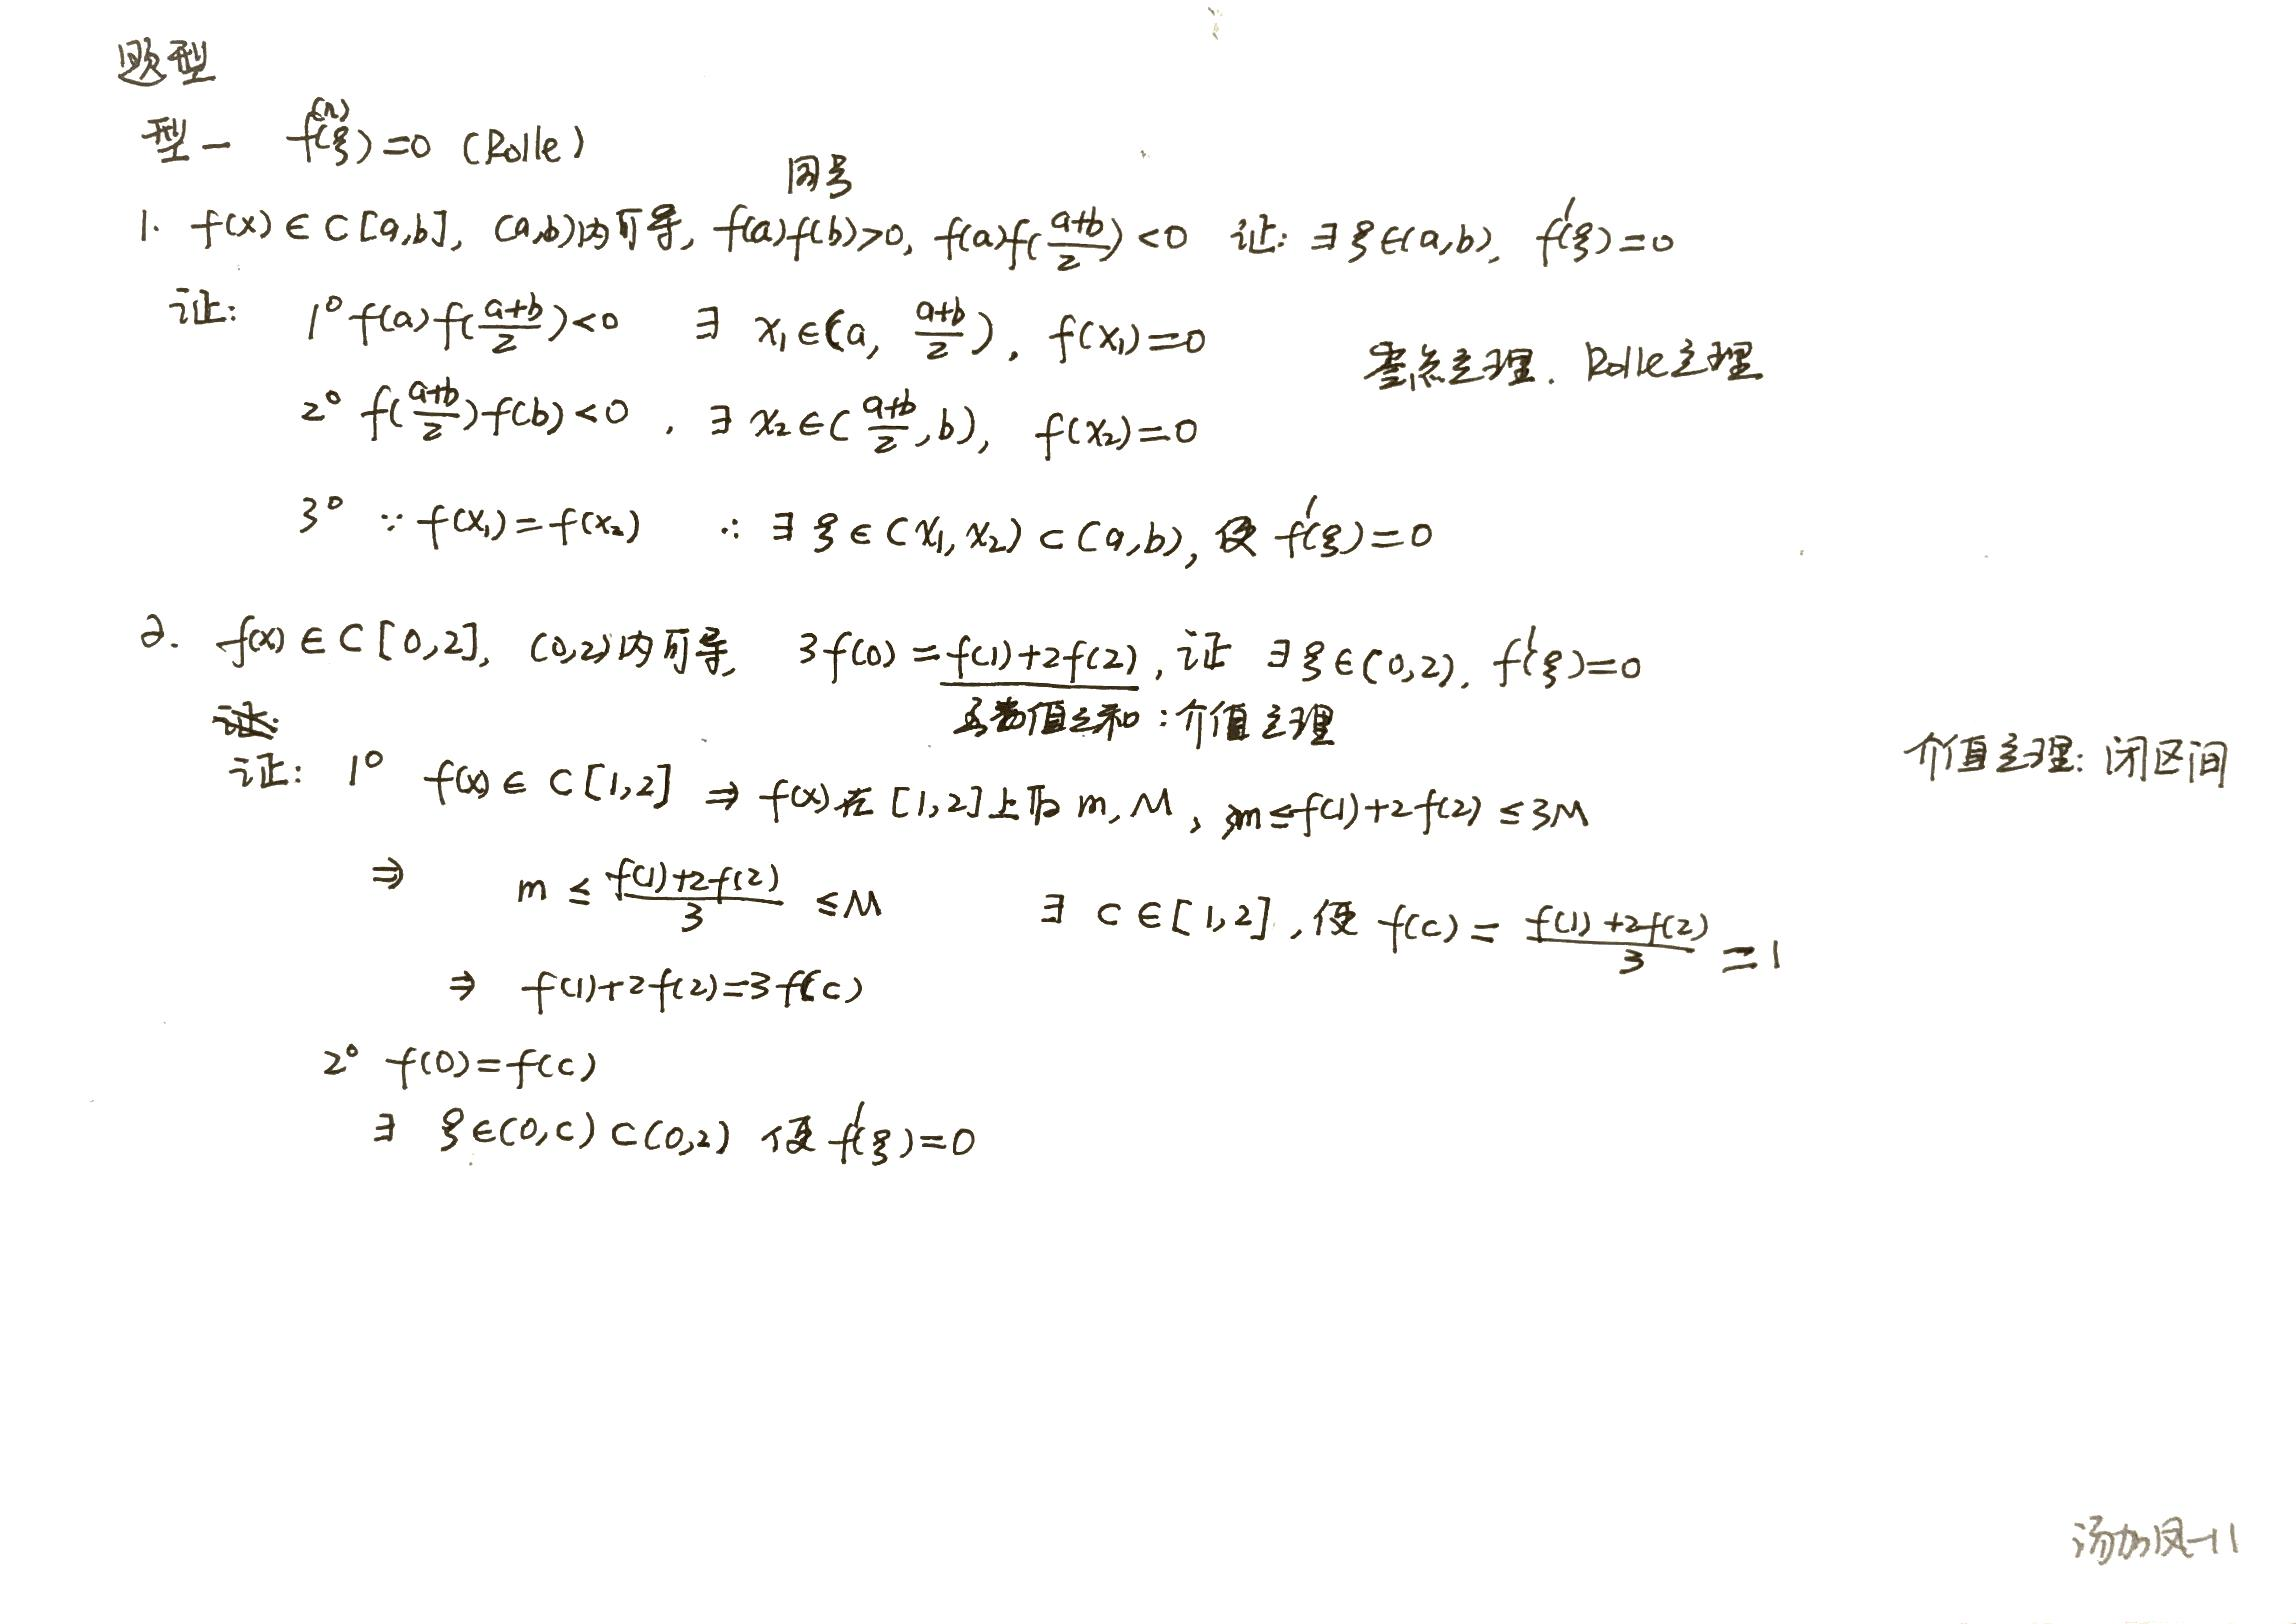 题型
型一 f⁽ⁿ⁾(ξ)=0 (Rolle)
同号
1. f(x)∈C[a,b], (a,b)内可导, f(a)f(b)>0, f(a)f(\frac{a+b}{2})<0 证: ∃ξ∈(a,b), f'(ξ)=0
证: 1° f(a)f(\frac{a+b}{2})<0 ∃ x₁∈(a, \frac{a+b}{2}), f(x₁)=0
零点定理. Rolle定理
2° f(\frac{a+b}{2})f(b)<0, ∃ x₂∈(\frac{a+b}{2},b), f(x₂)=0
3° ∵ f(x₁)=f(x₂) ∴ ∃ξ∈(x₁,x₂)⊂(a,b), 使 f'(ξ)=0
2. f(x)∈C[0,2], (0,2)内可导, 3f(0)=f(1)+2f(2), 证 ∃ξ∈(0,2), f'(ξ)=0
函数值之和:介值定理
介值定理: 闭区间
证: 1° f(x)∈C[1,2] ⇒ f(x)在[1,2]上取m,M, 3m≤f(1)+2f(2)≤3M
⇒ m≤\frac{f(1)+2f(2)}{3}≤M ∃ c∈[1,2],使 f(c)=\frac{f(1)+2f(2)}{3}=1
⇒ f(1)+2f(2)=3f(c)
2° f(0)=f(c)
∃ ξ∈(0,c)⊂(0,2) 使 f'(ξ)=0
汤加凤-11